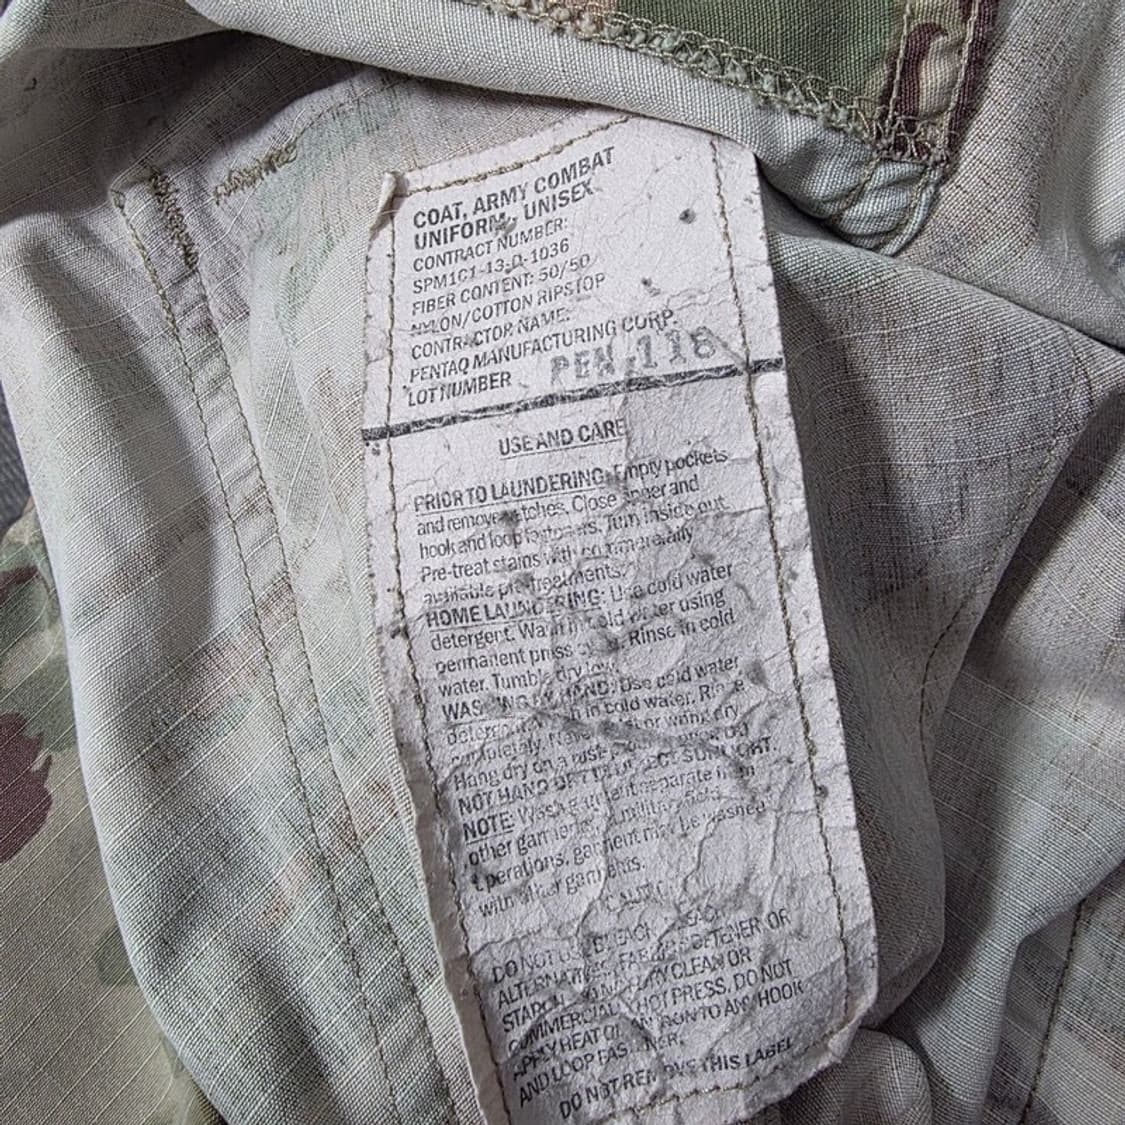 COAT, ARMY COMBAT
UNIFORM, UNISEX
CONTRACT NUMBER:
SPM1C1-13-D-1036
FIBER CONTENT: 50/50
NYLON/COTTON RIPSTOP
CONTRACTOR NAME:
PENTAQ MANUFACTURING CORP.
LOT NUMBER PEN 118
USE AND CARE
PRIOR TO LAUNDERING: Empty pockets
and remove. Close and
hook and loop. Turn inside out.
Pre-treat stains with commercially
available pre-treatments.
HOME LAUNDERING: Use cold water
detergent. Wash in cold water using
permanent press. Rinse in cold
water. Tumble dry low.
WASHING BY HAND: Use cold water
in cold water. Rinse
completely. or wring dry.
Hang dry on a rust
NOT HANG DIRECT SUNLIGHT.
NOTE: Wash garment separate from
other garments. military field
operations, garment may be washed
with other garments.
DO NOT USE BLEACH
SOFTENER OR
STARCH. CLEAN OR
COMMERCIAL HOT PRESS. DO NOT
APPLY HEAT IRON TO ANY HOOK
AND LOOP FASTENER.
DO NOT REMOVE THIS LABEL